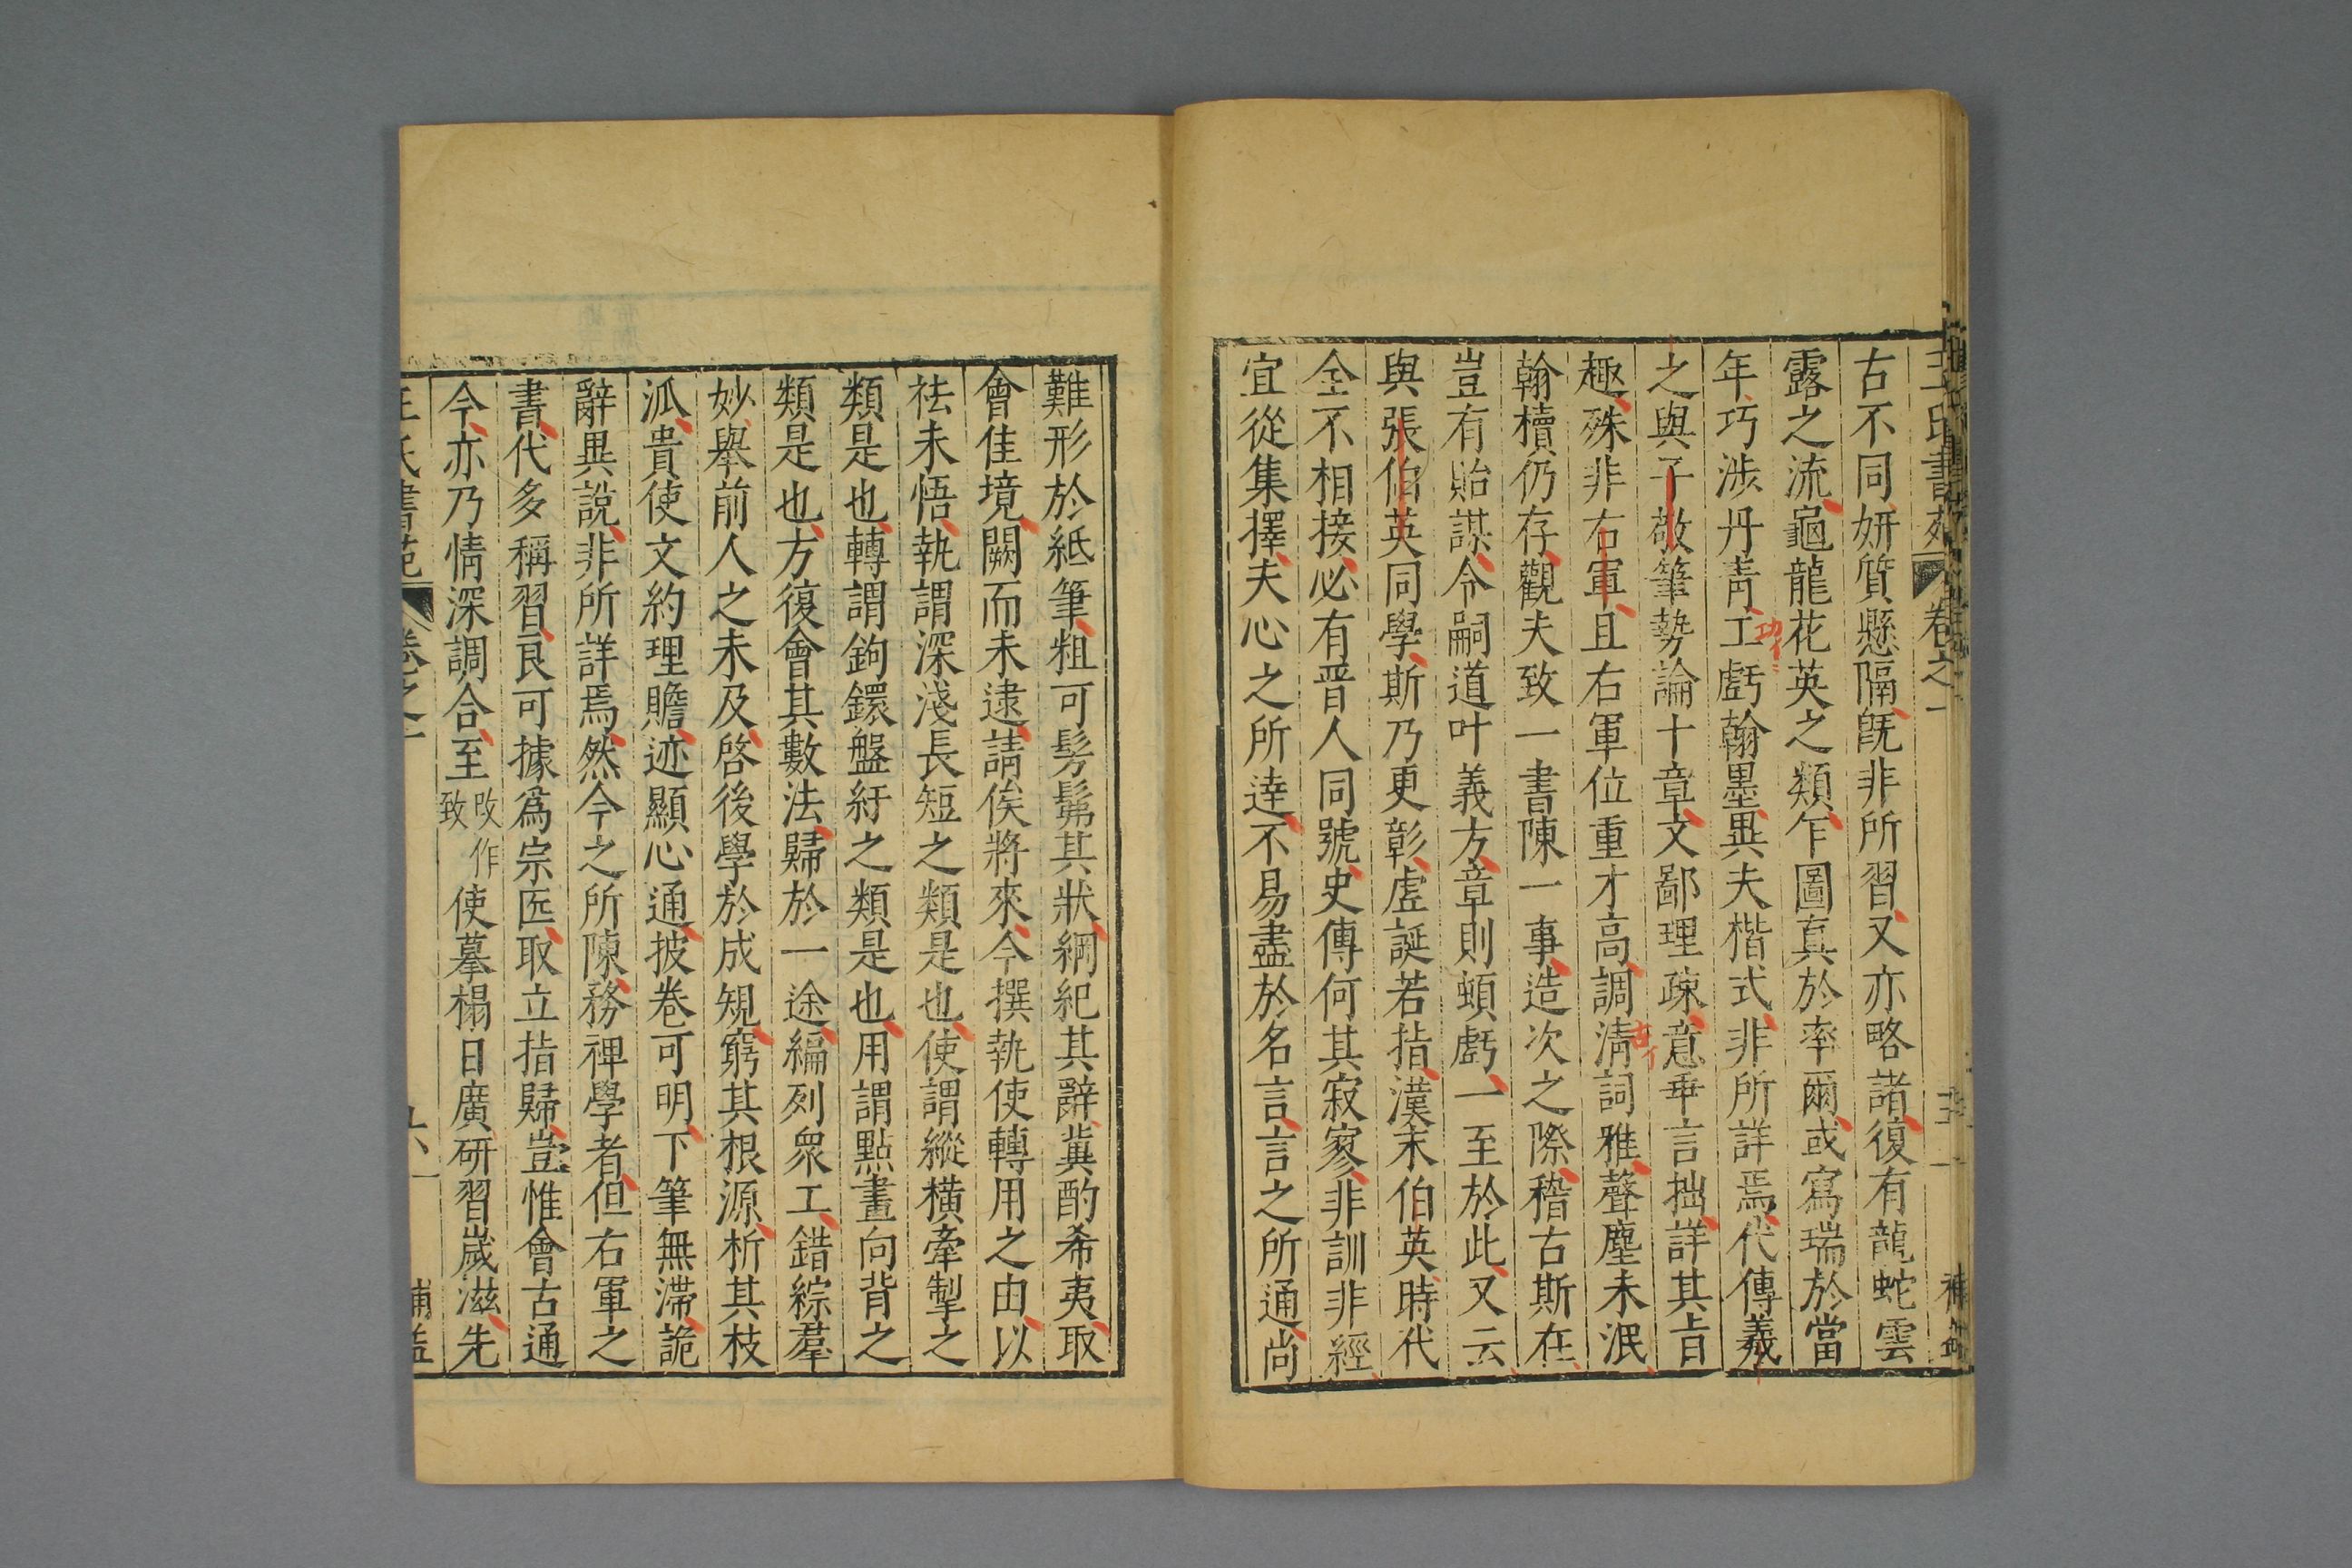 王氏書苑 卷之一
古不同妍質懸隔旣非所習又亦略諸復有龍蛇雲
露之流龜龍花英之類乍圖真於率爾或寫瑞於當
年巧涉丹靑工虧翰墨異夫楷式非所詳焉代傳羲
之與子敬筆勢論十章文鄙理疎意乖言拙詳其旨
趣殊非右軍且右軍位重才高調淸詞雅聲塵未泯
翰櫝仍存觀夫致一書陳一事造次之際稽古斯在
豈有貽謀令嗣道叶義方章則頓虧一至於此又云
與張伯英同學斯乃更彰虛誕若指漢末伯英時代
全不相接必有晉人同號史傳何其寂寥非訓非經
宜從集擇夫心之所達不易盡於名言言之所通尚
難形於紙筆粗可髣髴其狀綱紀其辭冀酌希夷取
會佳境闕而未逮請俟將來今撰執使轉用之由以
祛未悟執謂深淺長短之類是也使謂縱橫牽掣之
類是也轉謂鉤鐶盤紆之類是也用謂點畫向背之
類是也方復會其數法歸於一途編列衆工錯綜羣
妙舉前人之未及啓後學於成規窮其根源析其枝
泒貴使文約理贍迹顯心通披卷可明下筆無滯詭
辭異說非所詳焉然今之所陳務裨學者但右軍之
書代多稱習良可據爲宗匠取立指歸豈惟會古通
今亦乃情深調合至改作致使摹搨日廣研習歲滋先
王氏書苑 卷之一
補益